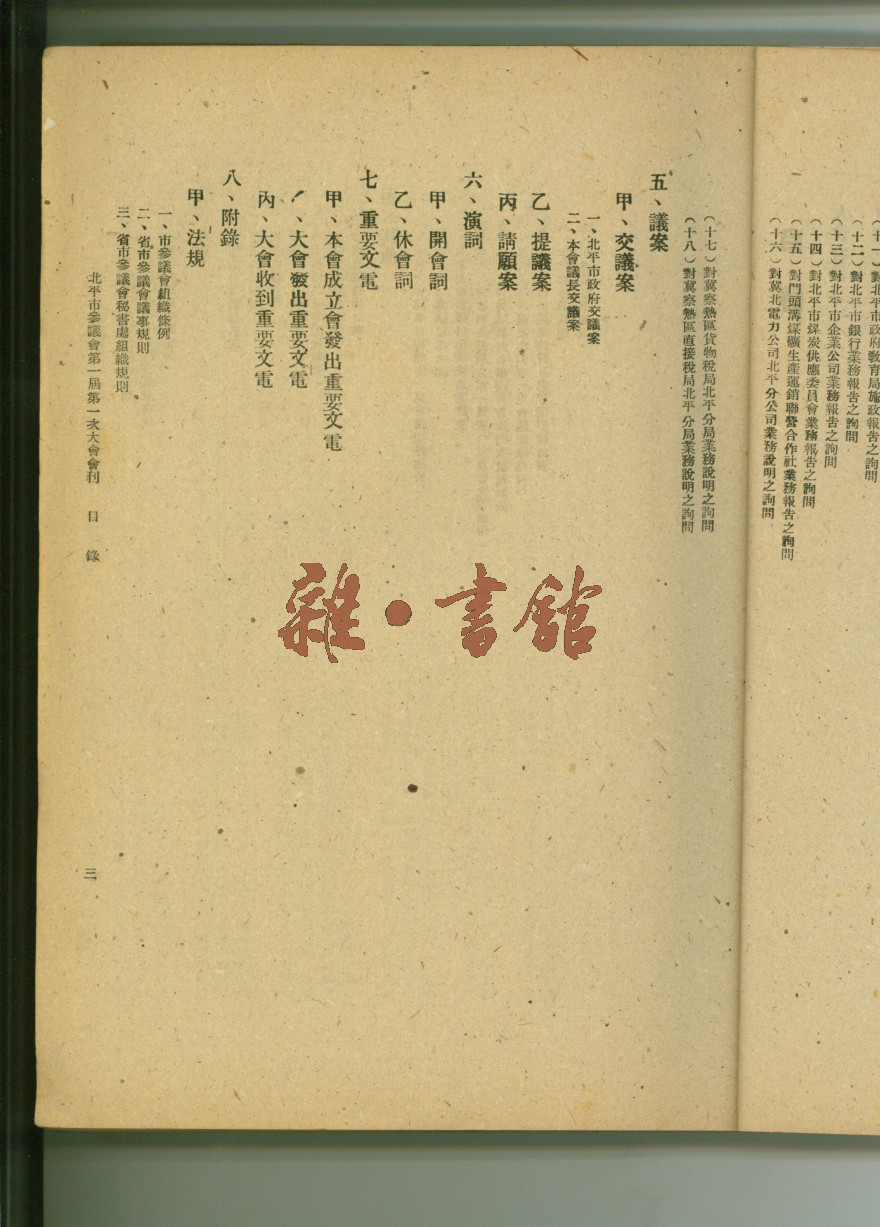 對北平市政府教育局施政報告之詢問
(十二)對北平市銀行業務報告之詢問
(十三)對北平市企業公司業務報告之詢問
(十四)對北平市煤炭供應委員會業務報告之詢問
(十五)對門頭溝煤礦生產運銷聯營合作社業務報告之詢問
(十六)對冀北電力公司北平分公司業務說明之詢問
(十七)對冀察熱區貨物稅局北平分局業務說明之詢問
(十八)對冀察熱區直接稅局北平分局業務說明之詢問
五、議案
甲、交議案
一、北平市政府交議案
二、本會議長交議案
乙、提議案
丙、請願案
六、演詞
甲、開會詞
乙、休會詞
七、重要文電
甲、本會成立會發出重要文電
、大會發出重要文電
丙、大會收到重要文電
八、附錄
甲、法規
一、市參議會組織條例
二、省市參議會議事規則
三、省市參議會秘書處組織規則
北平市參議會第一屆第一次大會會刊 目 錄
三
雜·書館